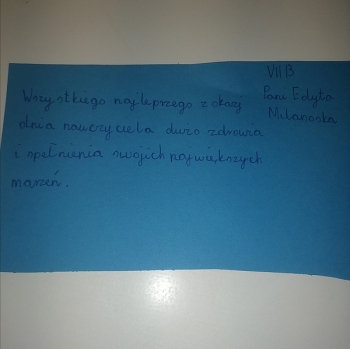 VII B
Pani Edyta
Milanoska
Wszystkiego najleprzego z okazj
dnia nauczyciela dużo zdrowia
i spełnienia swojich najwiękrzych
marzeń.